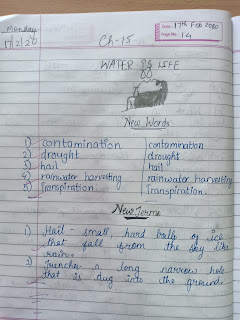 Monday
17/2/20
Ch-15
Date: 17th Feb 2020
Page No. 14
WATER IS LIFE
New Words
1) contamination contamination
2) drought drought
3) hail hail
4) rainwater harvesting rainwater harvesting
5) Transpiration Transpiration.
New Terms
1) Hail - small hard balls of ice
that fall from the sky like
rain.
2) Trenches - a long narrow hole
that is dug into the ground.